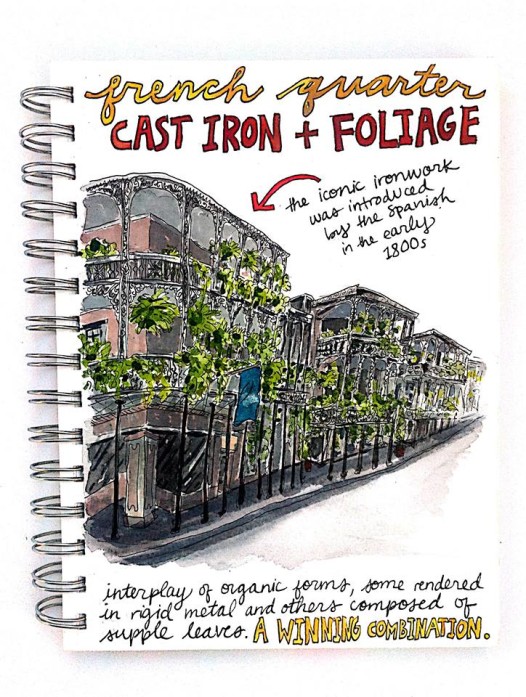 french quarter
CAST IRON + FOLIAGE
the iconic ironwork
was introduced
by the Spanish
in the early
1800s
interplay of organic forms, some rendered
in rigid metal and others composed of
supple leaves. A WINNING COMBINATION.